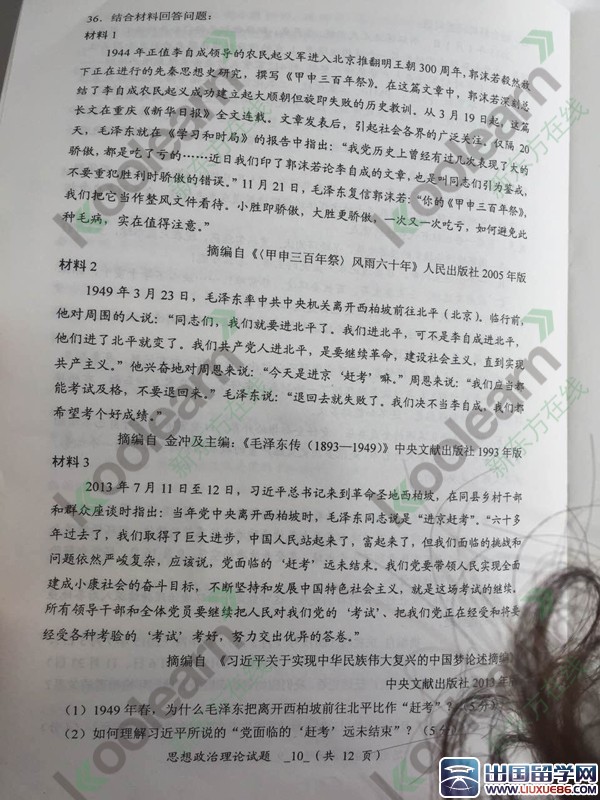 36．结合材料回答问题：
材料 1
1944 年正值李自成领导的农民起义军进入北京推翻明王朝 300 周年，郭沫若毅然放
下正在进行的先秦思想史研究，撰写《甲申三百年祭》。在这篇文章中，郭沫若深刻总
结了李自成农民起义成功建立起大顺朝但旋即失败的历史教训。从 3 月 19 日起，这篇
长文在重庆《新华日报》全文连载。文章发表后，引起社会各界的广泛关注。仅隔 20
天，毛泽东就在《学习和时局》的报告中指出：“我党历史上曾经有过几次表现了大的
骄傲，都是吃了亏的……近日我们印了郭沫若论李自成的文章，也是叫同志们引为鉴戒，
不要重犯胜利时骄傲的错误。”11 月 21 日，毛泽东复信郭沫若：“你的《甲申三百年祭》，
我们把它当作整风文件看待。小胜即骄傲，大胜更骄傲，一次又一次吃亏，如何避免此
种毛病，实在值得注意。”
摘编自《〈甲申三百年祭〉风雨六十年》人民出版社 2005 年版
材料 2
1949 年 3 月 23 日，毛泽东率中共中央机关离开西柏坡前往北平（北京）。临行前，
他对周围的人说：“同志们，我们就要进北平了。我们进北平，可不是李自成进北平，
他们进了北平就变了。我们共产党人进北平，是要继续革命，建设社会主义，直到实现
共产主义。”他兴奋地对周恩来说：“今天是进京‘赶考’嘛。”周恩来说：“我们应当都
能考试及格，不要退回来。”毛泽东说：“退回去就失败了。我们决不当李自成，我们都
希望考个好成绩。”
摘编自 金冲及主编：《毛泽东传（1893—1949）》中央文献出版社 1993 年版
材料 3
2013 年 7 月 11 日至 12 日，习近平总书记来到革命圣地西柏坡，在同县乡村干部
和群众座谈时指出：当年党中央离开西柏坡时，毛泽东同志说是“进京赶考”。“六十多
年过去了，我们取得了巨大进步，中国人民站起来了，富起来了，但我们面临的挑战和
问题依然严峻复杂，应该说，党面临的‘赶考’远未结束。我们党要带领人民实现全面
建成小康社会的奋斗目标，不断坚持和发展中国特色社会主义，就是这场考试的继续。
所有领导干部和全体党员要继续把人民对我们党的‘考试’、把我们党正在经受和将要
经受各种考验的‘考试’考好，努力交出优异的答卷。”
摘编自 《习近平关于实现中华民族伟大复兴的中国梦论述摘编
中央文献出版社 2013 年
（1）1949 年春，为什么毛泽东把离开西柏坡前往北平比作“赶考”？（5 分）
（2）如何理解习近平所说的“党面临的‘赶考’远未结束”？（5 分）
思想政治理论试题 10（共 12 页）
koolearn
新东方在线
出国留学网
www.liuxue86.com